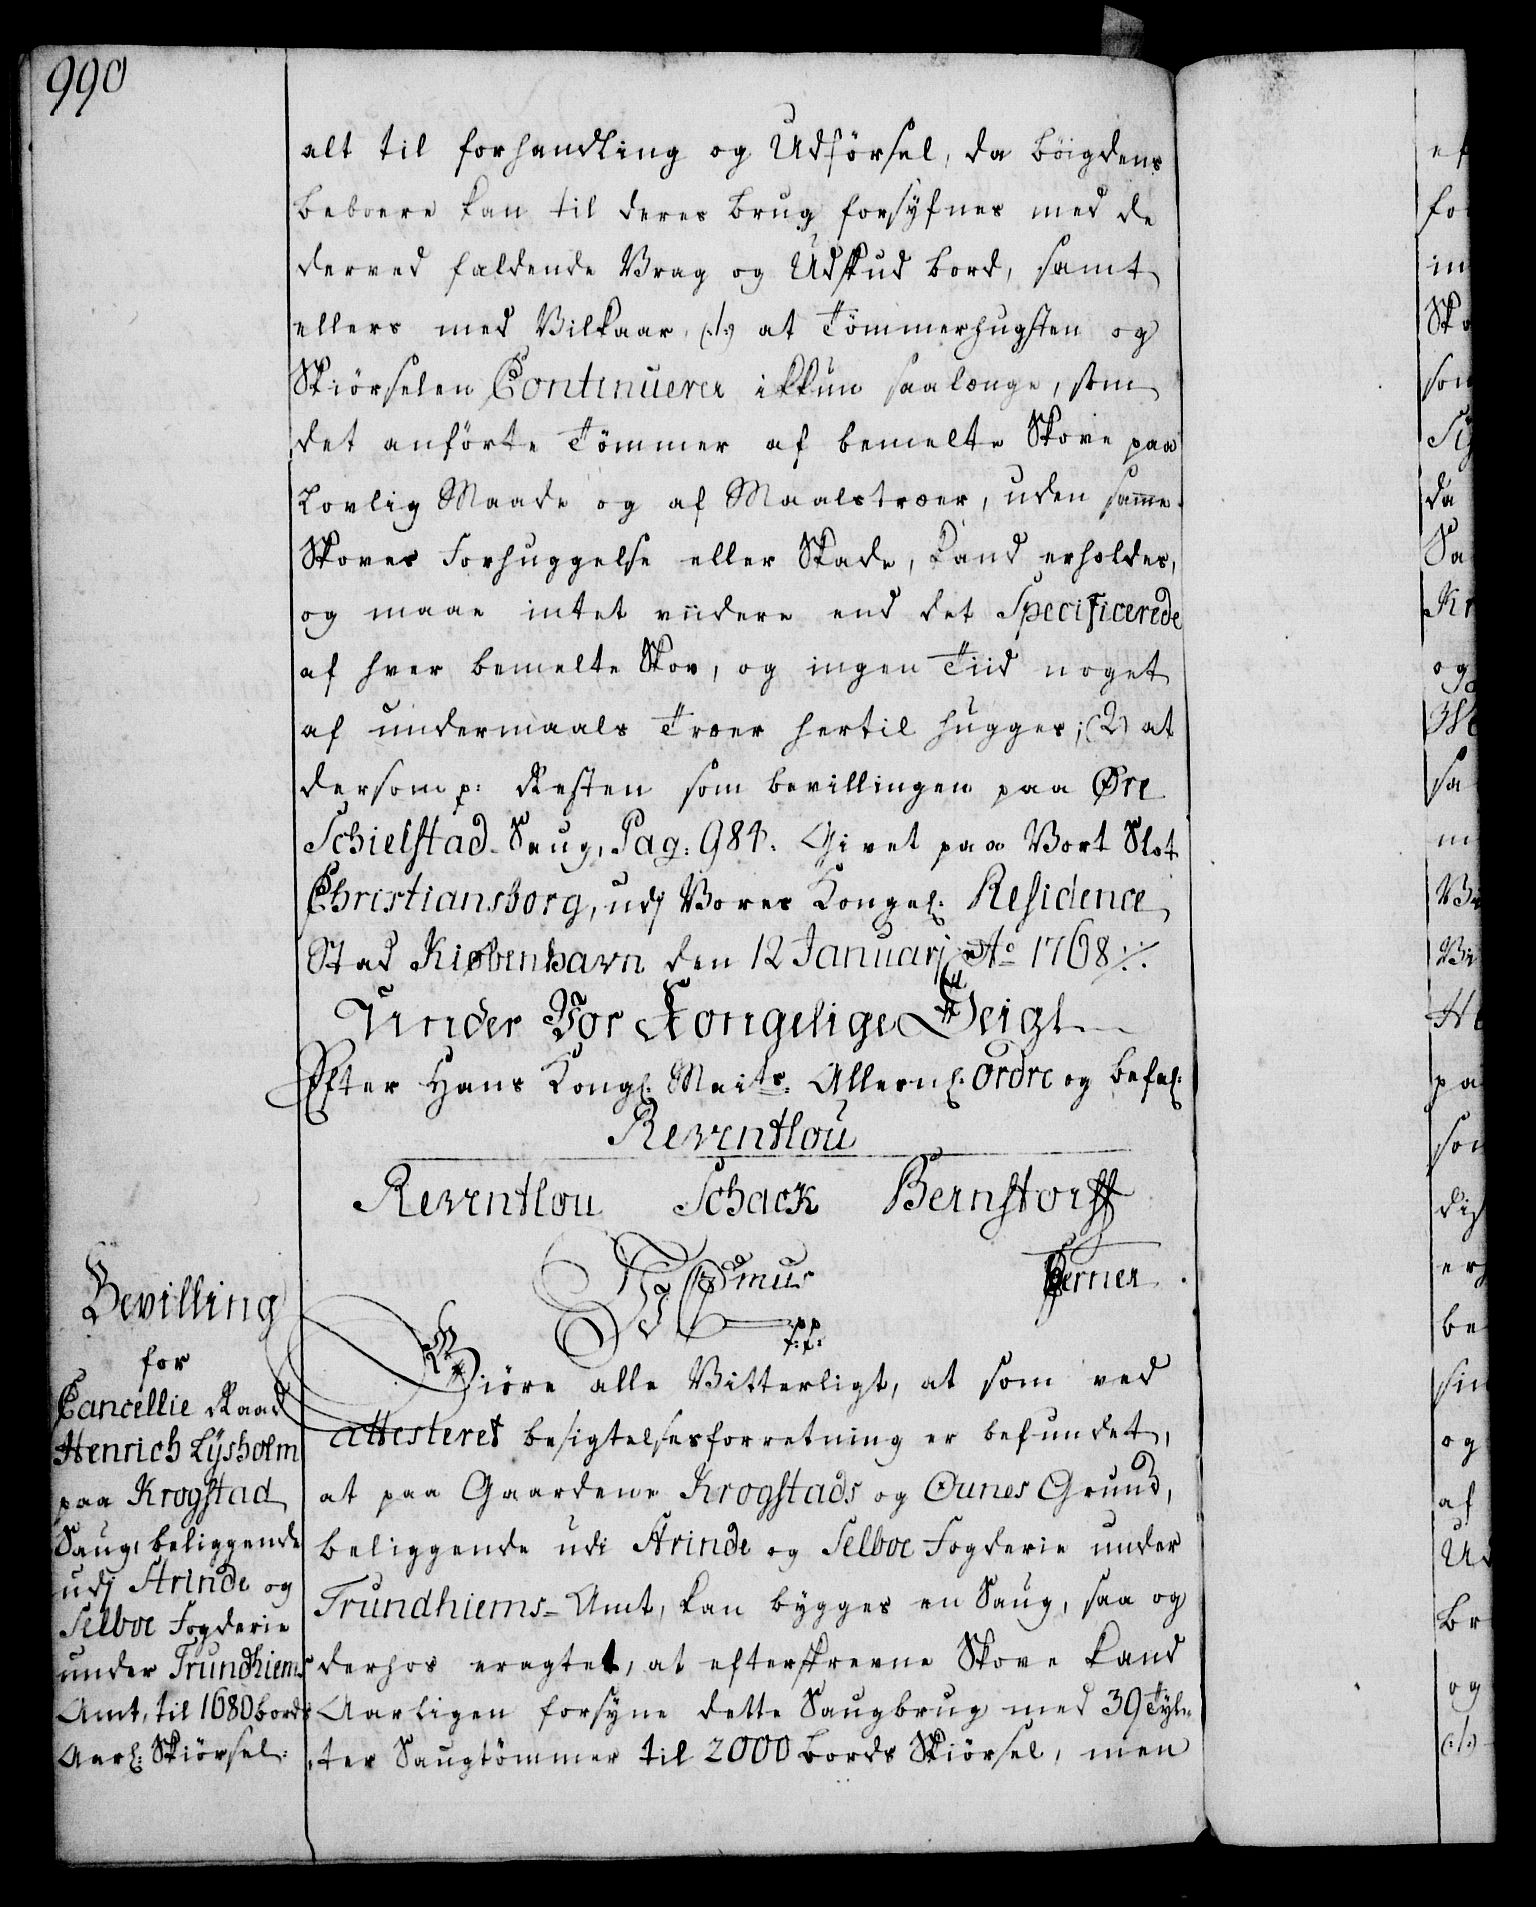 990
alt til forhandling og Udförsel, da böigdens
beboere kan til deres brug forsÿfnes med de
derved faldende Vrag og Udskud bord, samt
ellers med Vilkaar, (:1:) at Tömmerhugsten og
Skiörselen Continuerer ikkun saalænge, som
det anförte Tömmer af bemelte Skove paa
Lovlig Maade og af Maalstræer, uden samme
Skoves Forhuggelse eller Skade, kand erholdes,
og maae intet viidere end det Specificerede
af hver bemelte Skov, og ingen Tiid noget
af undermaals Træer hertil hugges; (2) at
dersom p: Resten som bevillingen paa Øre
Schielstad Saug, Pag: 984. Givet paa Vort Slot
Christiansborg, udj Vores Kongel: Residence
Stad Kiøbenhavn den 12 Januarj Ao 1768 ./.
Under Vor Kongelige Seigl
Efter Hans Kongl: Maits: Allern: Ordre og befal:
Reventlou
Reventlou Schack Bernstorff
Ferner
Bevilling
for
Cancellie Raad
Henrich Lÿsholm
paa Krogstad
Saug, beliggende
udj Strinde og
Selboe Fogderie
under Trundhiems
Amt, til 1680 bords
Aarl: Skiörsel:
Giöre alle Vitterligt, at som ved
attesteret besigtelsesforretning er befundet,
at paa Gaardene Krogstads og Ounes Grund,
beliggende udi Strinde og Selboe Fogderie under
Trundhiems-Amt, kan bÿgges en Saug, saa og
derhos eragtet, at efterskrevne Skove kand
Aarligen forsÿne dette Saugbrug med 39 Tÿl-
ter Saugtömmer til 2000 bords Skiörsel, men